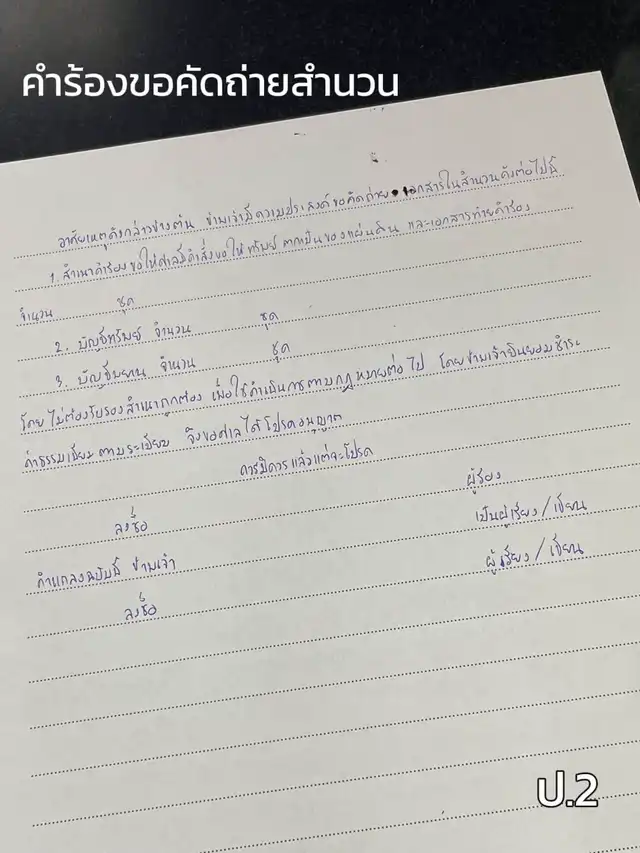 คำร้องขอคัดถ่ายสำนวน
อาศัยเหตุดังกล่าวข้างต้น ข้าพเจ้ามีความประสงค์ขอคัดถ่ายเอกสารในสำนวนดังต่อไปนี้
1. สำเนาคำร้องขอให้ศาลมีคำสั่งขอให้ทรัพย์ตกเป็นของแผ่นดิน และเอกสารท้ายคำร้อง
จำนวน ชุด
2. บัญชีทรัพย์ จำนวน ชุด
3. บัญชีพยาน จำนวน ชุด
โดยไม่ต้องรับรองสำเนาถูกต้อง เพื่อใช้ดำเนินการตามกฎหมายต่อไป โดยข้าพเจ้ายินยอมชำระ
ค่าธรรมเนียมตามระเบียบ จึงขอศาลได้โปรดอนุญาต
ควรมิควรแล้วแต่จะโปรด
ลงชื่อ ผู้ร้อง
คำแถลงฉบับนี้ ข้าพเจ้า เป็นผู้เรียง/เขียน
ลงชื่อ ผู้เรียง/เขียน
ป.2